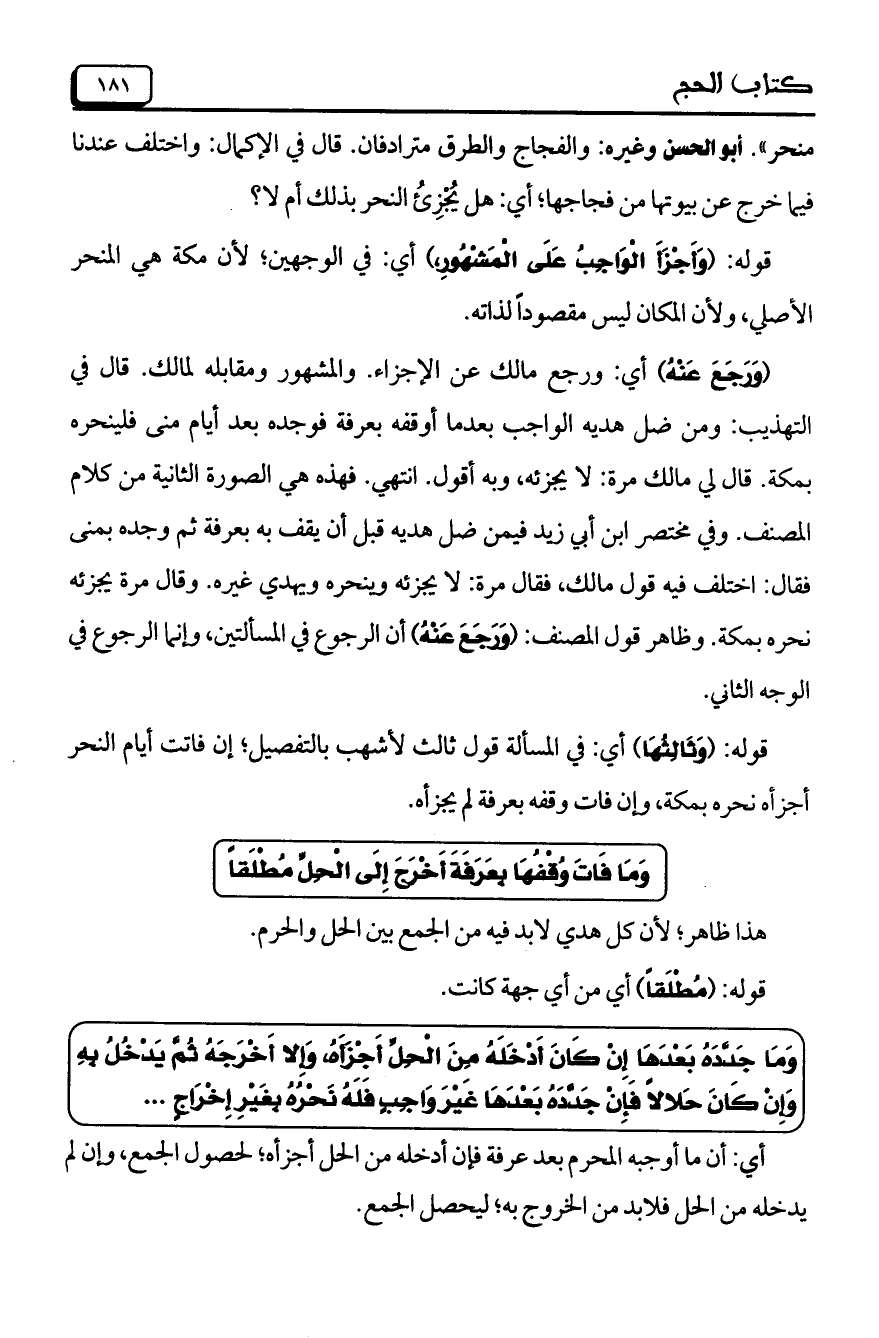 كتاب الحج
١٨١
منحر». أبو الحسن وغيره: والفجاج والطرق مترادفان. قال في الإكمال: واختلف عندنا
فيما خرج عن بيوتها من فجاجها؛ أي: هل يُجْزِئُ النحر بذلك أم لا؟
قوله: (وَأَجْزَأَ الْوَاجِبُ عَلَى الْمَشْهُورِ،) أي: في الوجهين؛ لأن مكة هي المنحر
الأصلي، ولأن المكان ليس مقصوداً لذاته.
(وَرَجَعَ عَنْهُ) أي: ورجع مالك عن الإجزاء. والمشهور ومقابله لمالك. قال في
التهذيب: ومن ضل هديه الواجب بعدما أوقفه بعرفة فوجده بعد أيام منى فلينحره
بمكة. قال لي مالك مرة: لا يجزئه، وبه أقول. انتهي. فهذه هي الصورة الثانية من كلام
المصنف. وفي مختصر ابن أبي زيد فيمن ضل هديه قبل أن يقف به بعرفة ثم وجده بمنى
فقال: اختلف فيه قول مالك، فقال مرة: لا يجزئه وينحره ويهدي غيره. وقال مرة يجزئه
نحره بمكة. وظاهر قول المصنف: (وَرَجَعَ عَنْهُ) أن الرجوع في المسألتين، وإنما الرجوع في
الوجه الثاني.
قوله: (وَثَالِثُهَا) أي: في المسألة قول ثالث لأشهب بالتفصيل؛ إن فاتت أيام النحر
أجزأه نحره بمكة، وإن فات وقفه بعرفة لم يجزأه.
وَمَا فَاتَ وُقْفُهَا بِعَرَفَةَ أَخْرَجَ إِلَى الْحِلِّ مُطْلَقاً
هذا ظاهر؛ لأن كل هدي لابد فيه من الجمع بين الحل والحرم.
قوله: (مُطْلَقاً) أي من أي جهة كانت.
وَمَا جَدَّدَهُ بَعْدَهَا إِنْ كَانَ أَدْخَلَهُ مِنَ الْحِلِّ أَجْزَأَهُ، وَإِلا أَخْرَجَهُ ثُمَّ يَدْخُلُ بِهِ
وَإِنْ كَانَ حَلالاً فَإِنْ جَدَّدَهُ بَعْدَهَا غَيْرَ وَاجِبٍ فَلَهُ نَحْرُهُ بِغَيْرِ إِخْرَاجٍ ...
أي: أن ما أوجبه المحرم بعد عرفة فإن أدخله من الحل أجزأه؛ لحصول الجمع، وإن لم
يدخله من الحل فلابد من الخروج به؛ ليحصل الجمع.